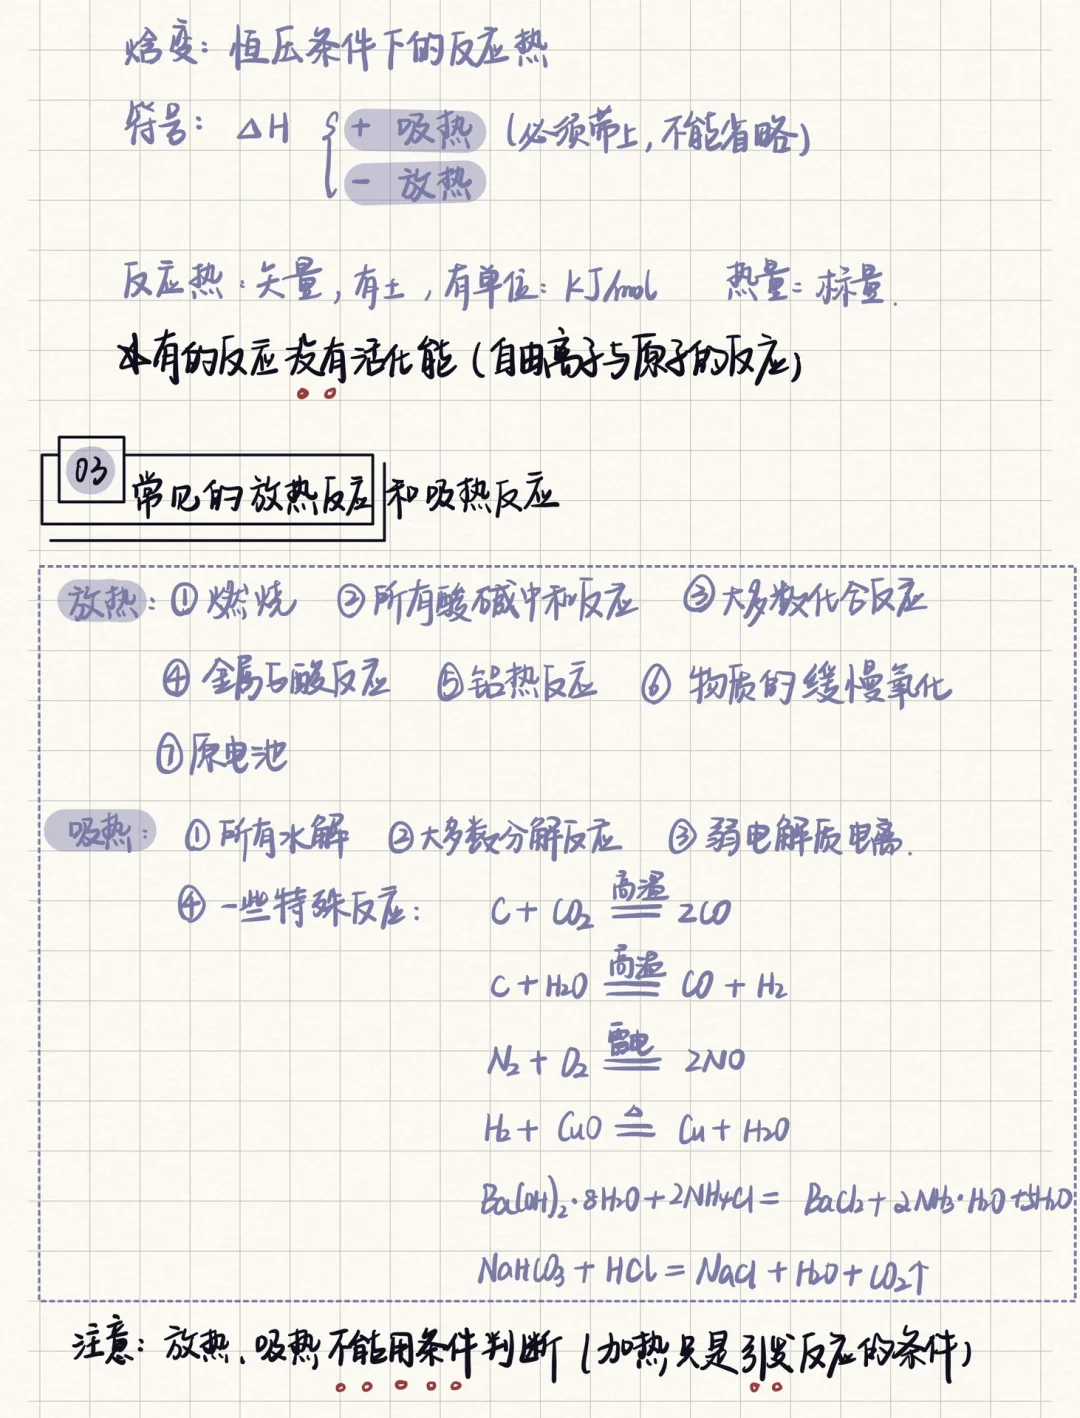 焓变：恒压条件下的反应热
符号：△H { + 吸热 (必须带上,不能省略)
- 放热
反应热：矢量,有±,有单位：kJ/mol 热量：标量.
有的反应没有活化能(自由离子与原子的反应)
03
常见的放热反应和吸热反应
放热：①燃烧 ②所有酸碱中和反应 ③大多数化合反应
④金属与酸反应 ⑤铝热反应 ⑥物质的缓慢氧化
⑦原电池
吸热：①所有水解 ②大多数分解反应 ③弱电解质电离.
④一些特殊反应： C + CO₂ 高温══ 2CO
C + H2O 高温══ CO + H₂
N₂ + O₂ 雷电══ 2NO
H₂ + CuO △══ Cu + H2O
Ba(OH)₂·8H2O+2NH4Cl = BaCl₂+2NH3·H2O+8H2O
NaHCO3 + HCl = NaCl + H2O + CO2↑
注意：放热、吸热不能用条件判断(加热只是引发反应的条件)